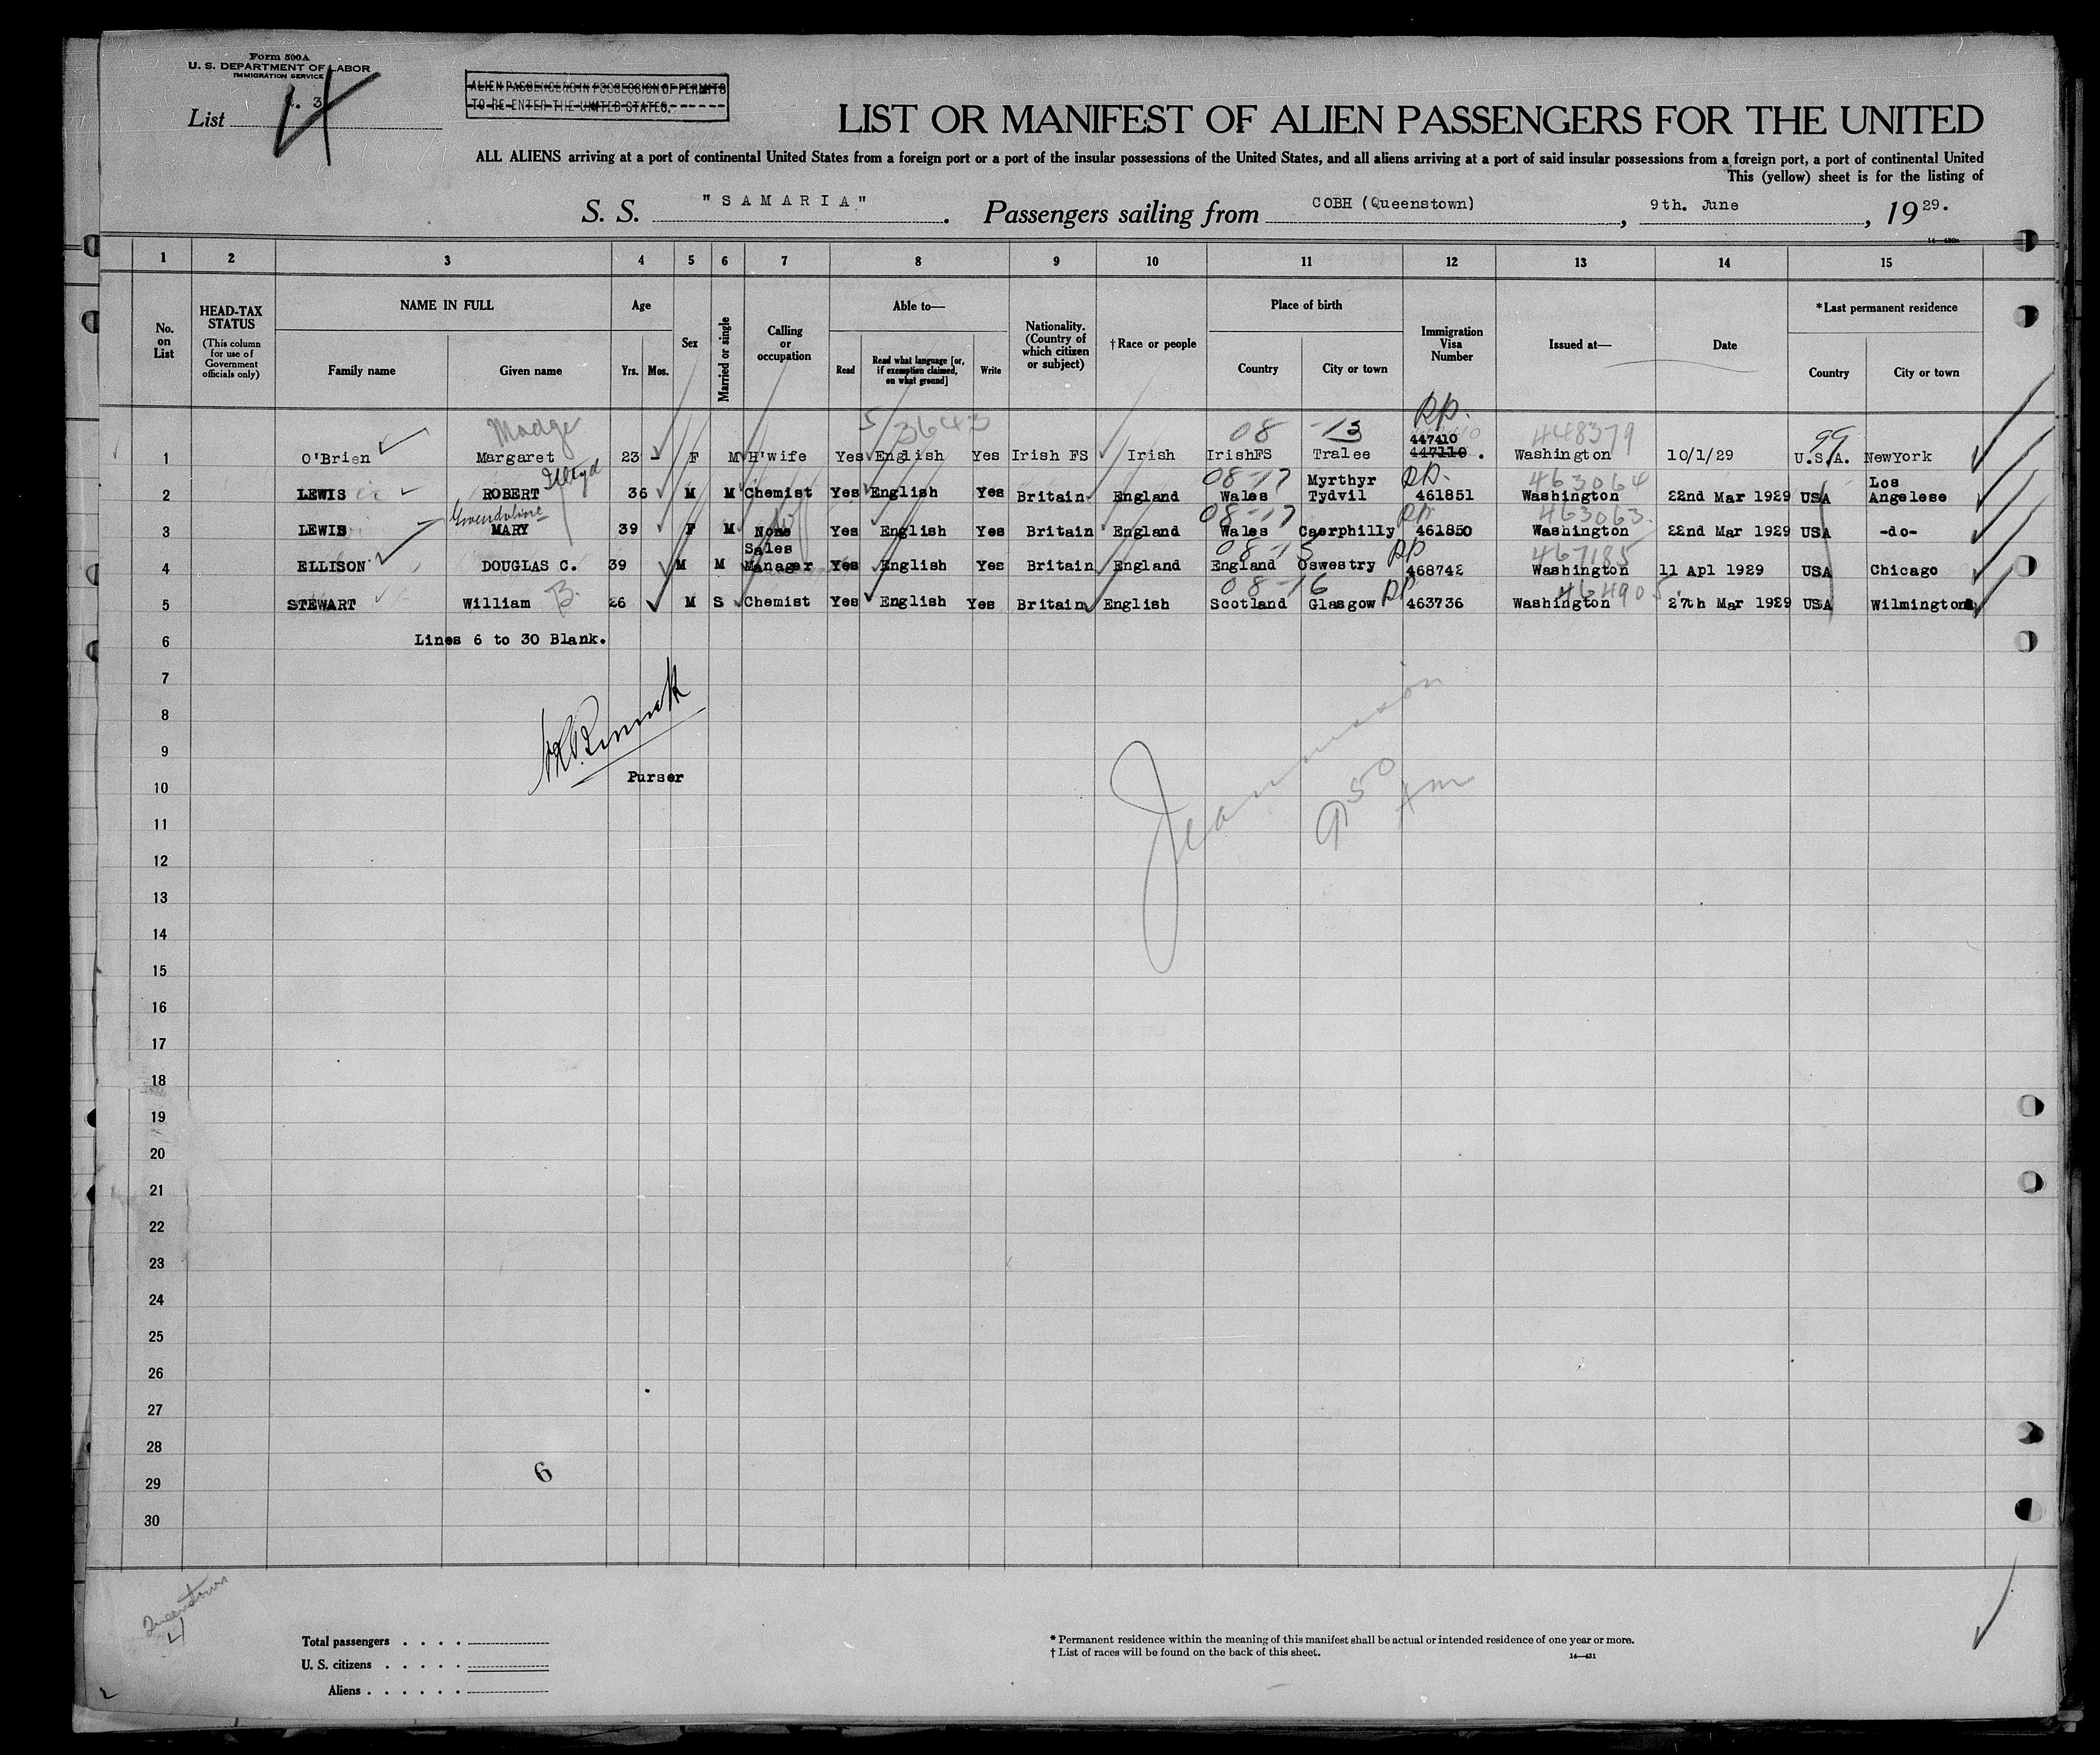 Form 500A
U. S. DEPARTMENT OF LABOR
IMMIGRATION SERVICE
List 3 4
ALIEN PASSENGERS IN POSSESSION OF PERMITS
TO RE-ENTER THE UNITED STATES.
LIST OR MANIFEST OF ALIEN PASSENGERS FOR THE UNITED
ALL ALIENS arriving at a port of continental United States from a foreign port or a port of the insular possessions of the United States, and all aliens arriving at a port of said insular possessions from a foreign port, a port of continental United
This (yellow) sheet is for the listing of
S. S. "SAMARIA". Passengers sailing from COBH (Queenstown), 9th. June, 1929.
1 2 3 4 5 6 7 8 9 10 11 12 13 14 15
No. on List
HEAD-TAX STATUS
(This column for use of Government officials only)
NAME IN FULL
Family name Given name
Age
Yrs. Mos.
Sex
Married or single
Calling or occupation
Able to—
Read
Read what language [or, if exemption claimed, on what ground]
Write
Nationality. (Country of which citizen or subject)
†Race or people
Place of birth
Country City or town
Immigration Visa Number
Issued at—
Date
*Last permanent residence
Country City or town
Madge 5 3643 08 -13 RP. 447410 448379 99
1 O'Brien Margaret 23 - F M H'wife Yes English Yes Irish FS Irish IrishFS Tralee 447110. Washington 10/1/29 U.S.A. NewYork
08-17 Myrthyr RP. 463064 Los
2 LEWIS ROBERT 36 M M Chemist Yes English Yes Britain England Wales Tydvil 461851 Washington 22nd Mar 1929 USA Angelese
Gwendoline 08-17 RP 463063
3 LEWIS MARY 39 F M None Yes English Yes Britain England Wales Caerphilly 461850 Washington 22nd Mar 1929 USA -do-
Sales 08-15 RP 467185
4 ELLISON DOUGLAS C. 39 M M Manager Yes English Yes Britain England England Oswestry 468742 Washington 11 Apl 1929 USA Chicago
B. 08-16 RP 464905
5 STEWART William 26 M S Chemist Yes English Yes Britain English Scotland Glasgow 463736 Washington 27th Mar 1929 USA Wilmington
6 Lines 6 to 30 Blank.
7
8
9
Purser
9 50 Am
10
11
12
13
14
15
16
17
18
19
20
21
22
23
24
25
26
27
28
6
29
30
Queenstown
4
Total passengers . . . .
U. S. citizens . . . . .
Aliens . . . . . .
* Permanent residence within the meaning of this manifest shall be actual or intended residence of one year or more.
† List of races will be found on the back of this sheet.
14—431